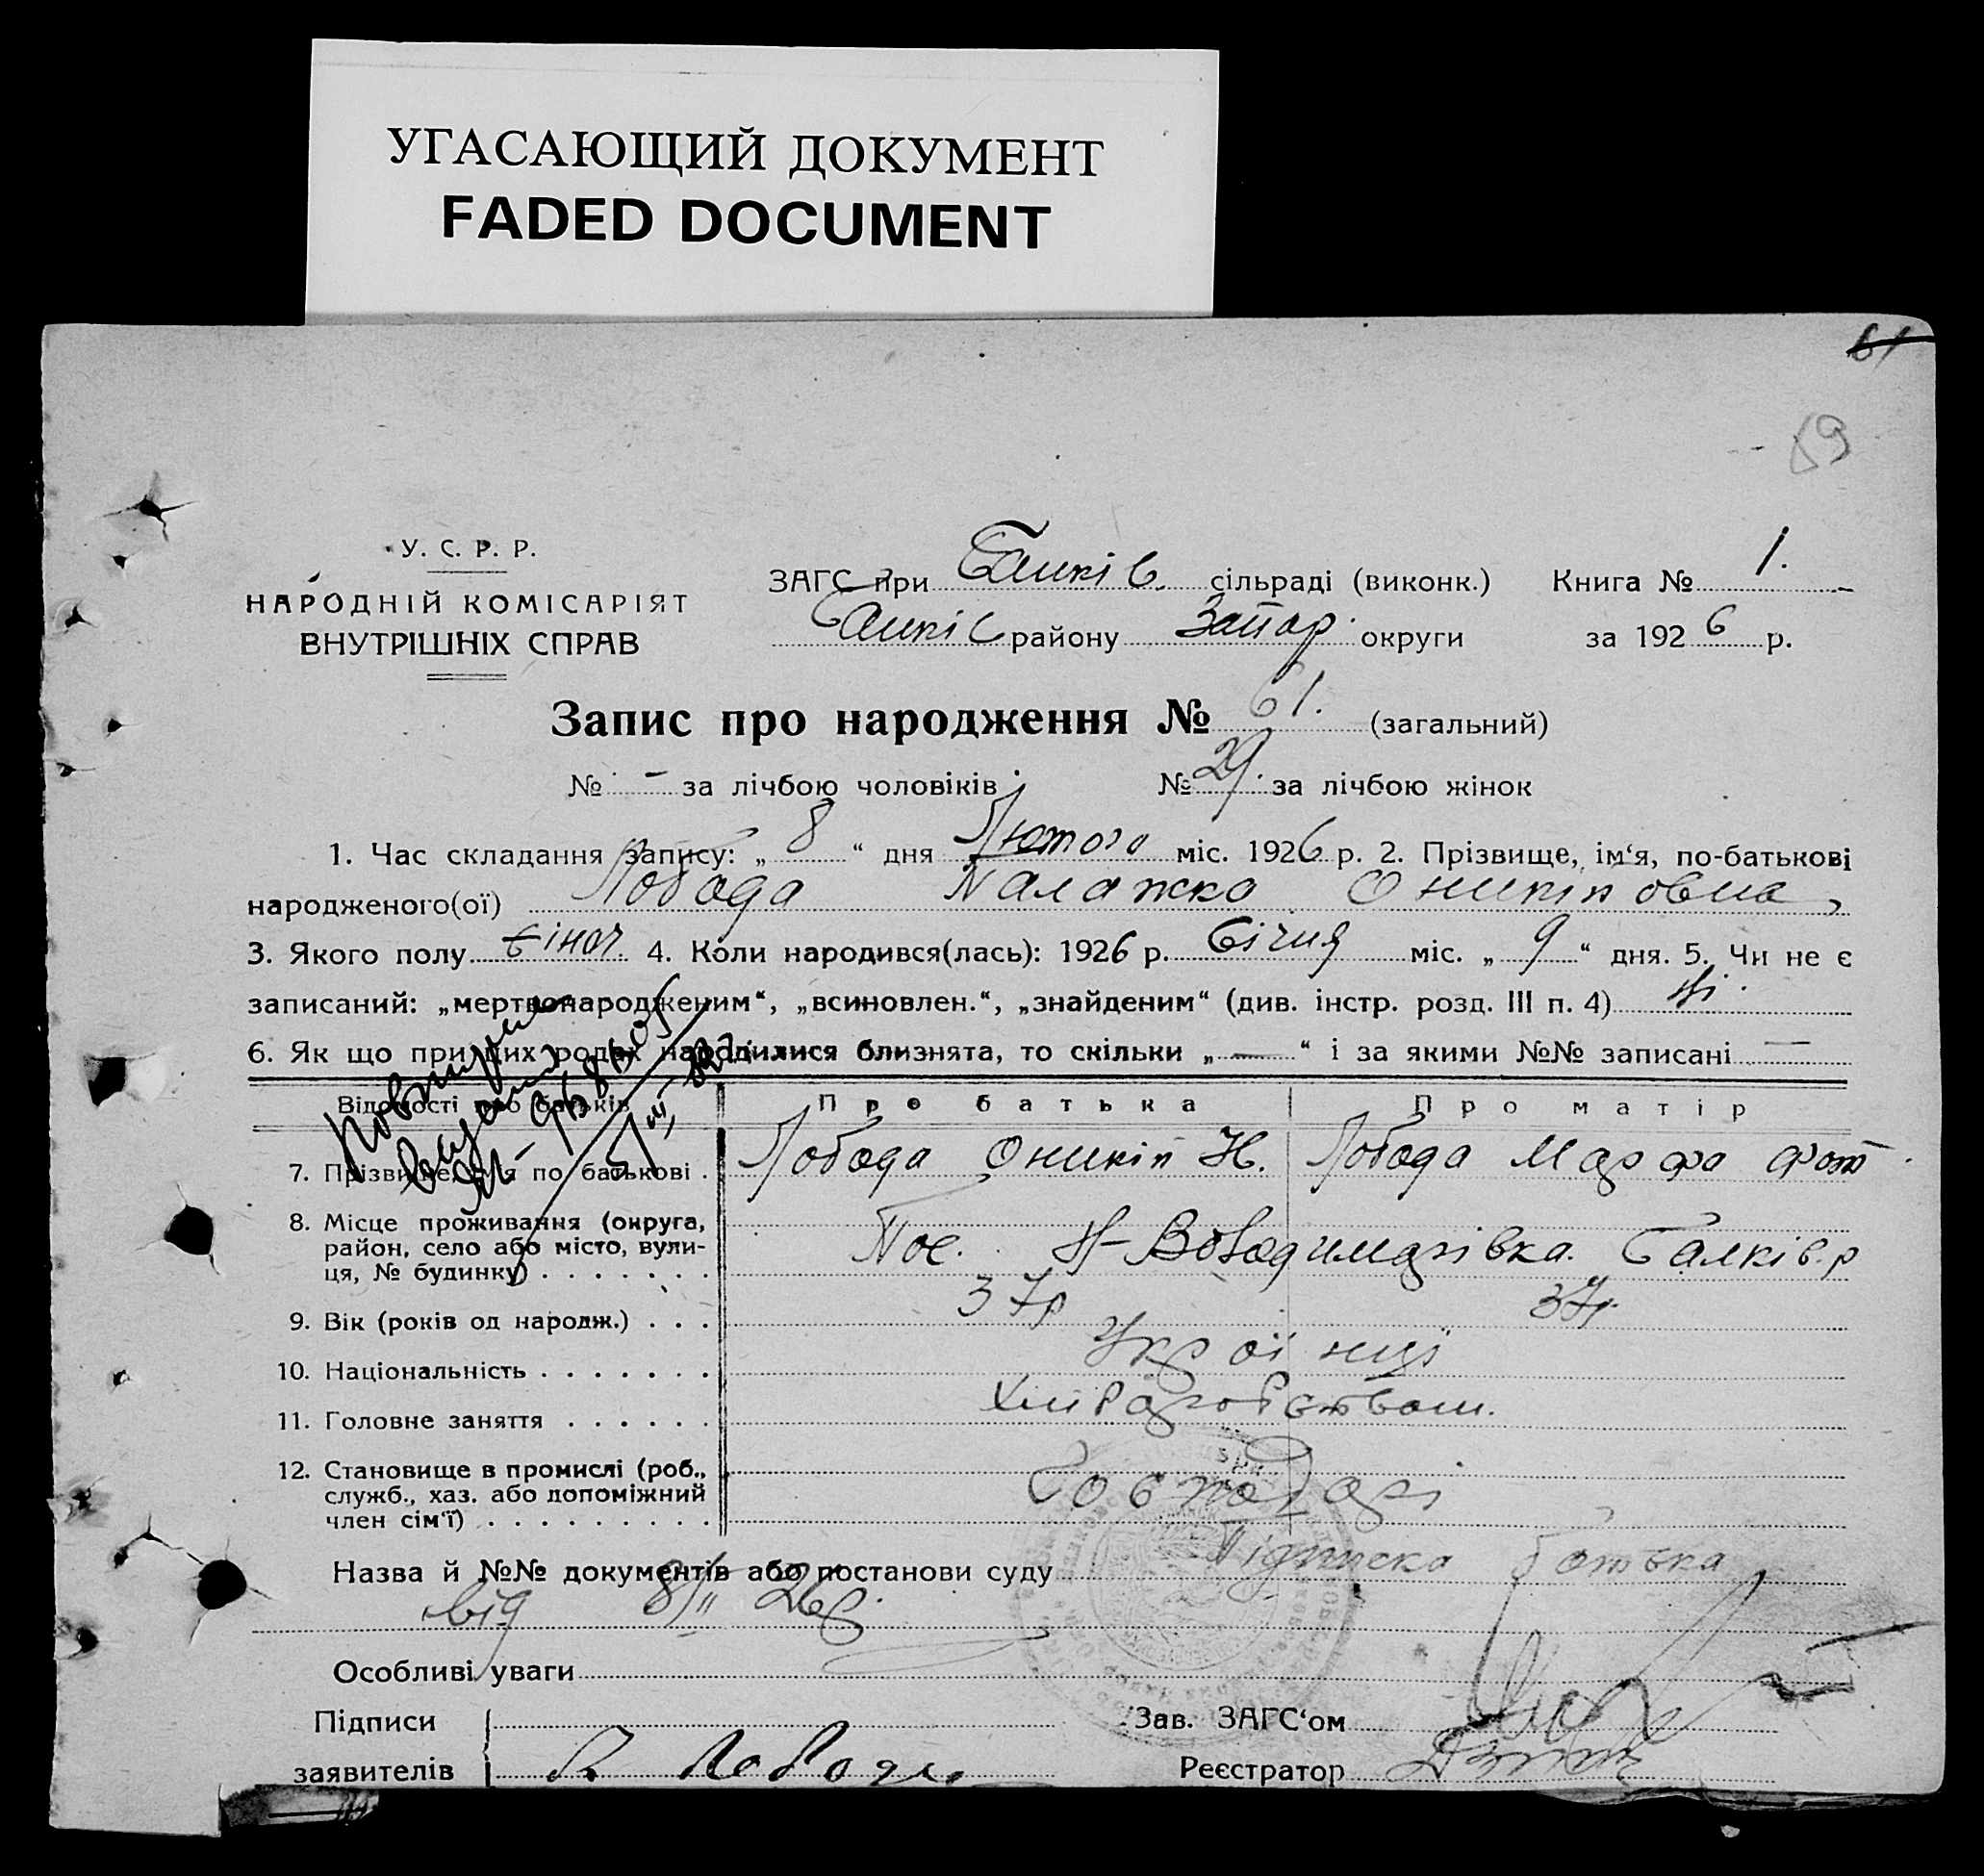 УГАСАЮЩИЙ ДОКУМЕНТ
FADED DOCUMENT
61
69
У. С. Р. Р.
НАРОДНІЙ КОМІСАРІЯТ
ВНУТРІШНІХ СПРАВ
ЗАГС при Балків. сільраді (виконк.) Книга № 1.
Балків району Запор. округи за 1926 р.
Запис про народження № 61. (загальний)
№ - за лічбою чоловіків № 29. за лічбою жінок
1. Час складання запису: „ 8 “ дня Лютого міс. 1926 р. 2. Прізвище, ім‘я, по-батькові
народженого(ої) Лобода Палажка Оникіповна,
3. Якого полу жіноч. 4. Коли народився(лась): 1926 р. Січня міс. „ 9 “ дня. 5. Чи не є
записаний: „мертвонародженим“, „всиновлен.“, „знайденим“ (див. інстр. розд. III п. 4) Ні.
6. Як що при цих родах народилися близнята, то скільки „ — “ і за якими №№ записані —
Відомості про батьків Про батька Про матір
7. Прізвище, ім‘я по батькові . Лобода Оникіп Н. Лобода Марфа Фот
8. Місце проживання (округа,
район, село або місто, вули-
ця, № будинку) . . . . . . . Пос. Н-Володимирівка. Балків. р
9. Вік (років од народж.) . . . 37р 37р.
10. Національність . . . . . . . Українці
11. Головне заняття . . . . . . Хліборобством.
12. Становище в промислі (роб.,
служб., хаз. або допоміжний
член сім‘ї) . . . . . . . . . Господарі
Назва й №№ документів або постанови суду Підписка батька
від 8/II 26р.
Особливі уваги
Підписи Зав. ЗАГС‘ом
заявителів Лобода Реєстратор